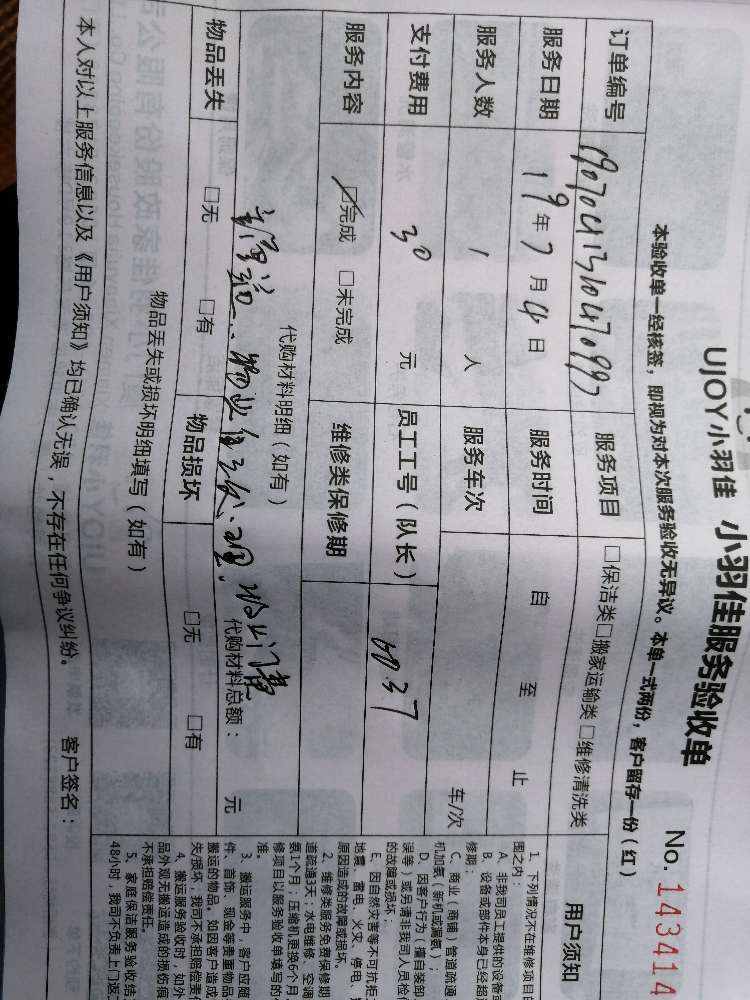 UJOY小羽佳 小羽佳服务验收单
No. 143414
本验收单一经核签，即视为对本次服务验收无异议。本单一式两份，客户留存一份（红）
订单编号
服务项目 □保洁类□搬家运输类 □维修清洗类
服务日期 19年7月4日 服务时间 自 至 止
服务人数 1 人 服务车次 车/次
支付费用 30 元 员工工号（队长） 6037
服务内容 ☑完成 □未完成 维修类保修期
代购材料明细（如有）
代购材料总额： 元
物品丢失 □无 □有 物品损坏 □无 □有
物品丢失或损坏明细填写（如有）
本人对以上服务信息以及《用户须知》均已确认无误，不存在任何争议纠纷。 客户签名：
用户须知
1、下列情况不在维修项目
围之内：
A、非我司员工提供的设备或
B、设备或部件本身已经超
修期；
C、商业（商铺）管道疏通
机加氨（新机或漏氨）；
D、因客户行为（擅自装卸
误等）或另请非我司人员检
的故障或损坏；
E、因自然灾害等不可抗拒
地震、雷电、火灾、停电、
原因造成的故障或损坏。
2、维修类服务免费保修期
道疏通3天；水电维修、空调
氨1个月；压缩机更换6个月
修项目以服务验收单填写的
准。
3、搬运服务中，客户应随
件、首饰、现金等贵重物品
搬运的物品，如因客户造成
失/损坏，我司不承担赔偿责
4、搬运服务验收时，如外
品外观无搬运造成的损伤痕
不承担赔偿责任。
5、家庭保洁服务验收结
48小时，我司不负责上门返工